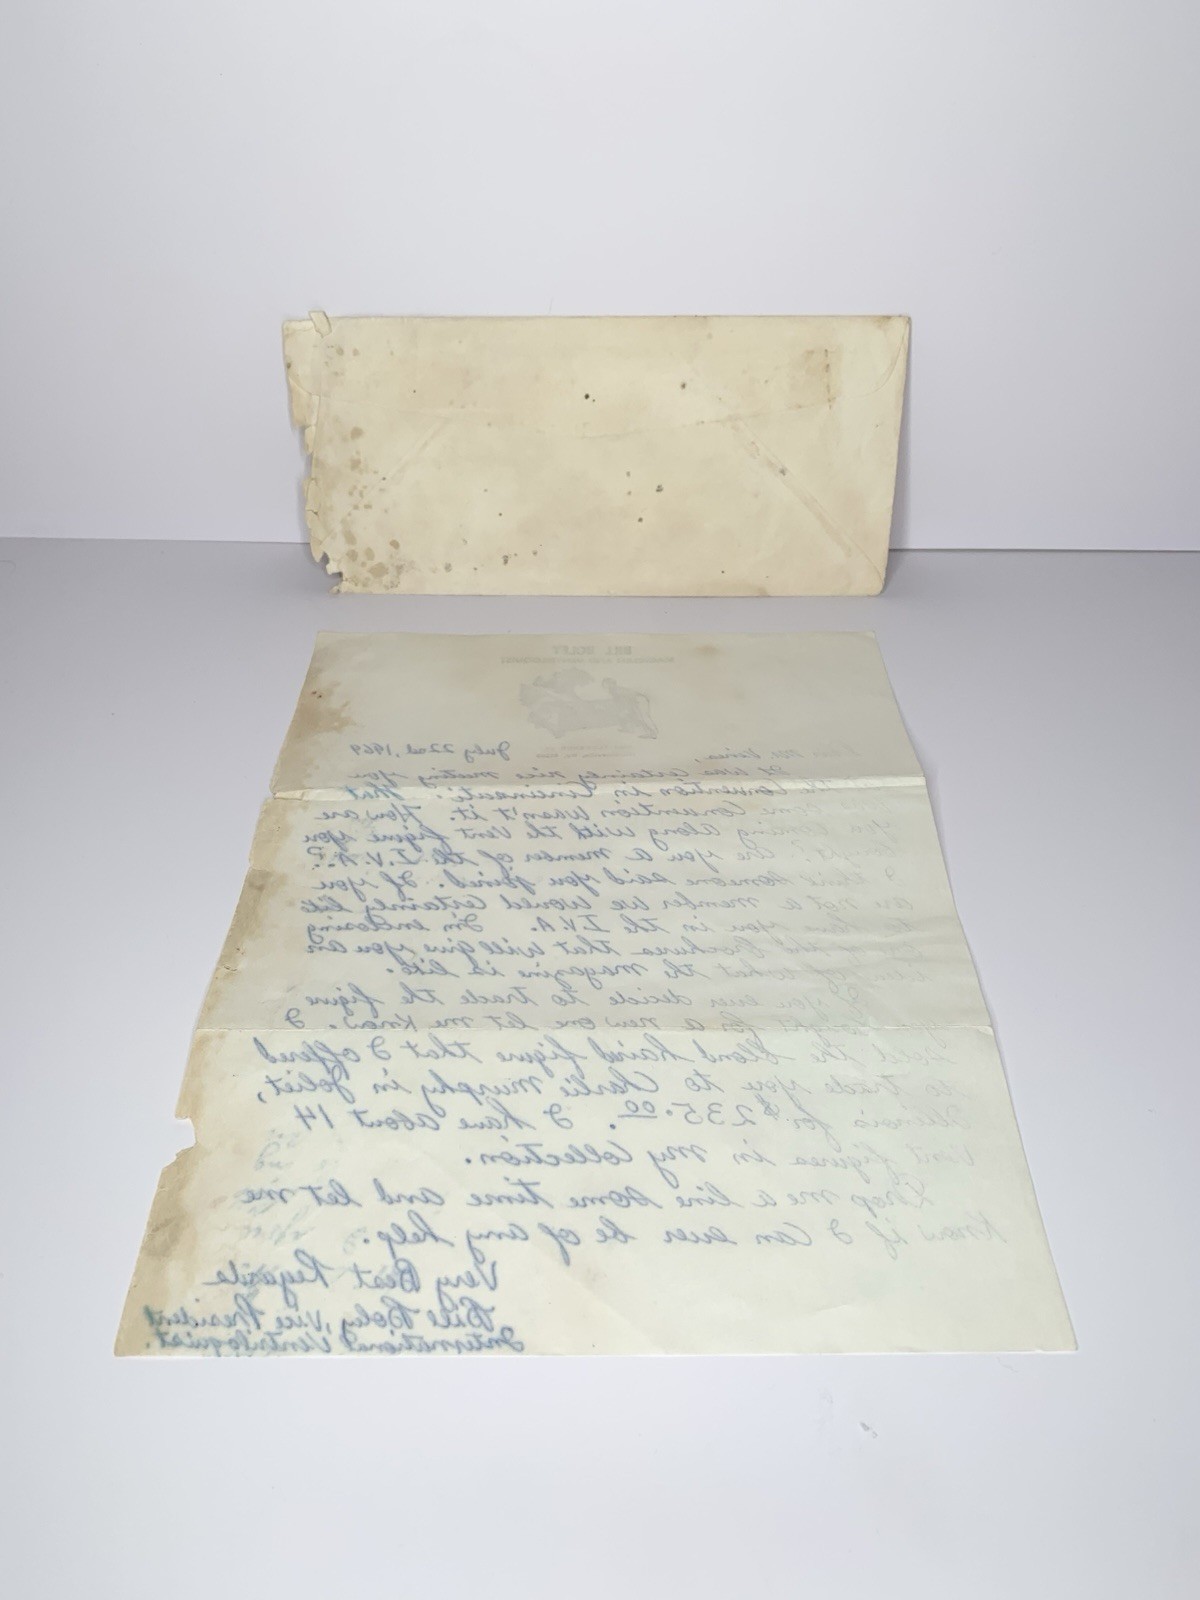 BILL BOLEY
July 22nd, 1969
Dear Mr.
It was certainly nice meeting you
the Convention in Cincinnati. That
some Convention wasn't it. How are
you coming along with the Vent figure you
bought? Are you a member of the I.V.A.?
I think someone said you joined. If you
are not a member we would certainly like
to have you in the I.V.A. I'm enclosing
the brochures that will give you an
idea of what the magazine is like.
If you ever decide to trade the figure
you bought for a new one let me know. I
sold the blond haird figure that I offered
to trade you to Charlie Murphy in Joliet,
Illinois for $235.00. I have about 14
Vent figures in my Collection.
Drop me a line some time and let me
know if I can ever be of any help.
Very Best Regards
Bill Boley, Vice President
International Ventriloquist.